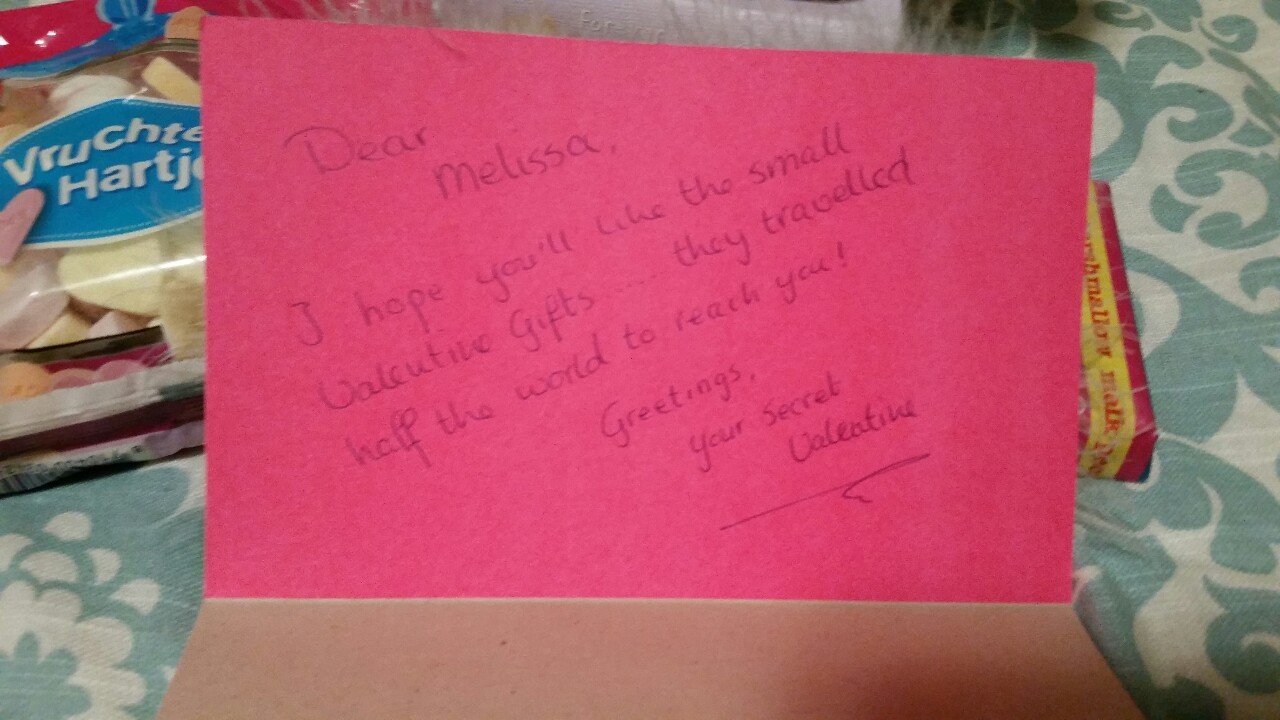 Forever
Vruchte
Hartje
Dear
Melissa,
I hope you'll like the small
Valentine Gifts.... they travelled
half the world to reach you!
Greetings,
your Secret
Valentine